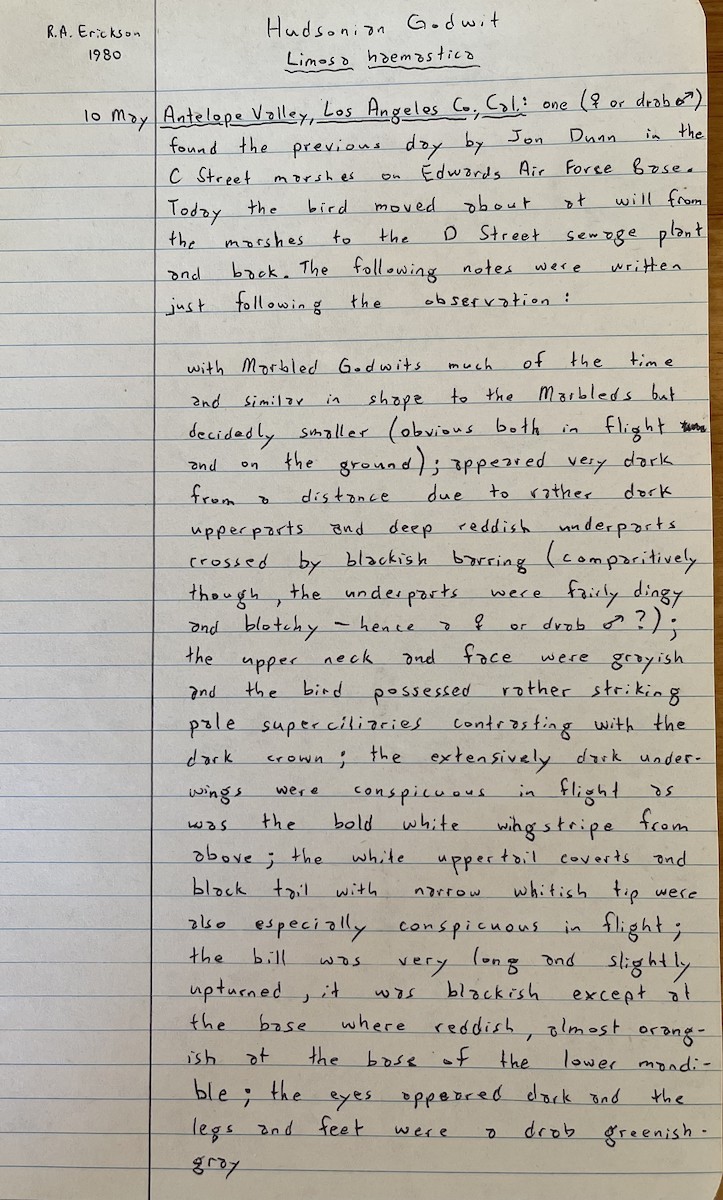 R.A. Erickson
1980
Hudsonian Godwit
Limosa haemastica
10 May Antelope Valley, Los Angeles Co., Cal.: one (♀ or drab ♂)
found the previous day by Jon Dunn in the
C Street marshes on Edwards Air Force Base.
Today the bird moved about at will from
the marshes to the D Street sewage plant
and back. The following notes were written
just following the observation:
with Marbled Godwits much of the time
and similar in shape to the Marbleds but
decidedly smaller (obvious both in flight
and on the ground); appeared very dark
from a distance due to rather dark
upperparts and deep reddish underparts
crossed by blackish barring (comparitively
though, the underparts were fairly dingy
and blotchy – hence a ♀ or drab ♂?);
the upper neck and face were grayish
and the bird possessed rather striking
pale superciliaries contrasting with the
dark crown; the extensively dark under-
wings were conspicuous in flight as
was the bold white wingstripe from
above; the white uppertail coverts and
black tail with narrow whitish tip were
also especially conspicuous in flight;
the bill was very long and slightly
upturned, it was blackish except at
the base where reddish, almost orang-
ish at the base of the lower mandi-
ble; the eyes appeared dark and the
legs and feet were a drab greenish-
gray